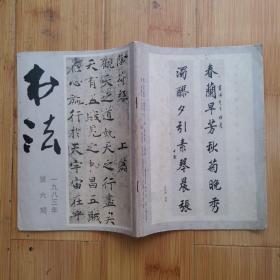 书法
一九八三年
第六期
陰符經 上篇
觀天之道執天之行盡矣
天有五賊見之者昌五賊
在心施行於天宇宙在乎
春蘭早芳秋菊晚秀
濁醪夕引素琴晨張